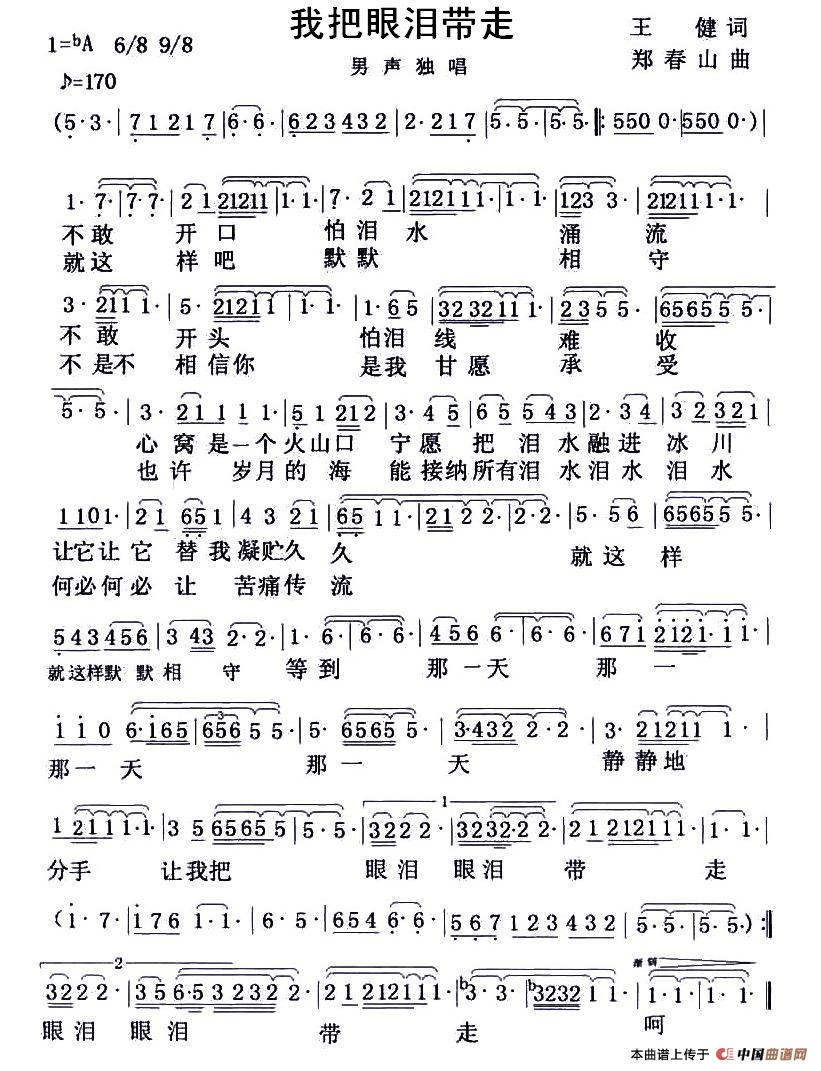 我把眼泪带走
王 健 词
1=♭A 6/8 9/8
男声独唱
郑春山 曲
♪=170
(5·3·|71217|6·6·|623432|2·217|5·5·|5·5·:550 0·|550 0·)|
1·7·|7·7·|21 21211|1·1·|7·21|212111 1·1·|123 3·3·|212111·1·|
不敢 开口 怕泪水 涌流
就这 样吧 默默 相守
3·2111·|5·21211|1·1·|1·65|32321 1·1·|235 5·|65655·5·|
不敢 开头 怕泪线 难收
不是不 相信你 是我 甘愿 承受
5·5·|3·211 1·|51 212|3·45|65 545|2·34|3 2321|
心窝是一个火山口 宁愿 把泪水融进 冰川
也许 岁月的海 能接纳所有泪 水泪水 泪水
1101·|21 651|43 21|65 1 1·1·|212 2·|2·2·|5·56|65655·5·|
让它让它 替我凝贮久久 就这样
何必何必让 苦痛传流
543456|3 43 2·2·|1·6·|6·6·|4566·|6·6·|671 2121·11·|
就这样默 默相 守 等到 那一天 那一
110|6·165|6565 5·|5·65655·|3·432 2·2·|3·21211 1·|
那一天 那一 天 静静地
1 2111·1·|35 65655|5·5·|3222·|32322·2·|21 212111|1·1·|
分手 让我把 眼泪 眼泪 带 走
(1·7·|176 1·1·|6·5·|654 6·6·|567123432|5·5·|5·5·):|
2
3222·|356·53232 2·|2·2·|21 212111|♭3·2·|♭32321 1·|1·1·|1·‖
眼泪 眼泪 带 走 呵
本曲谱上传于 中国曲谱网